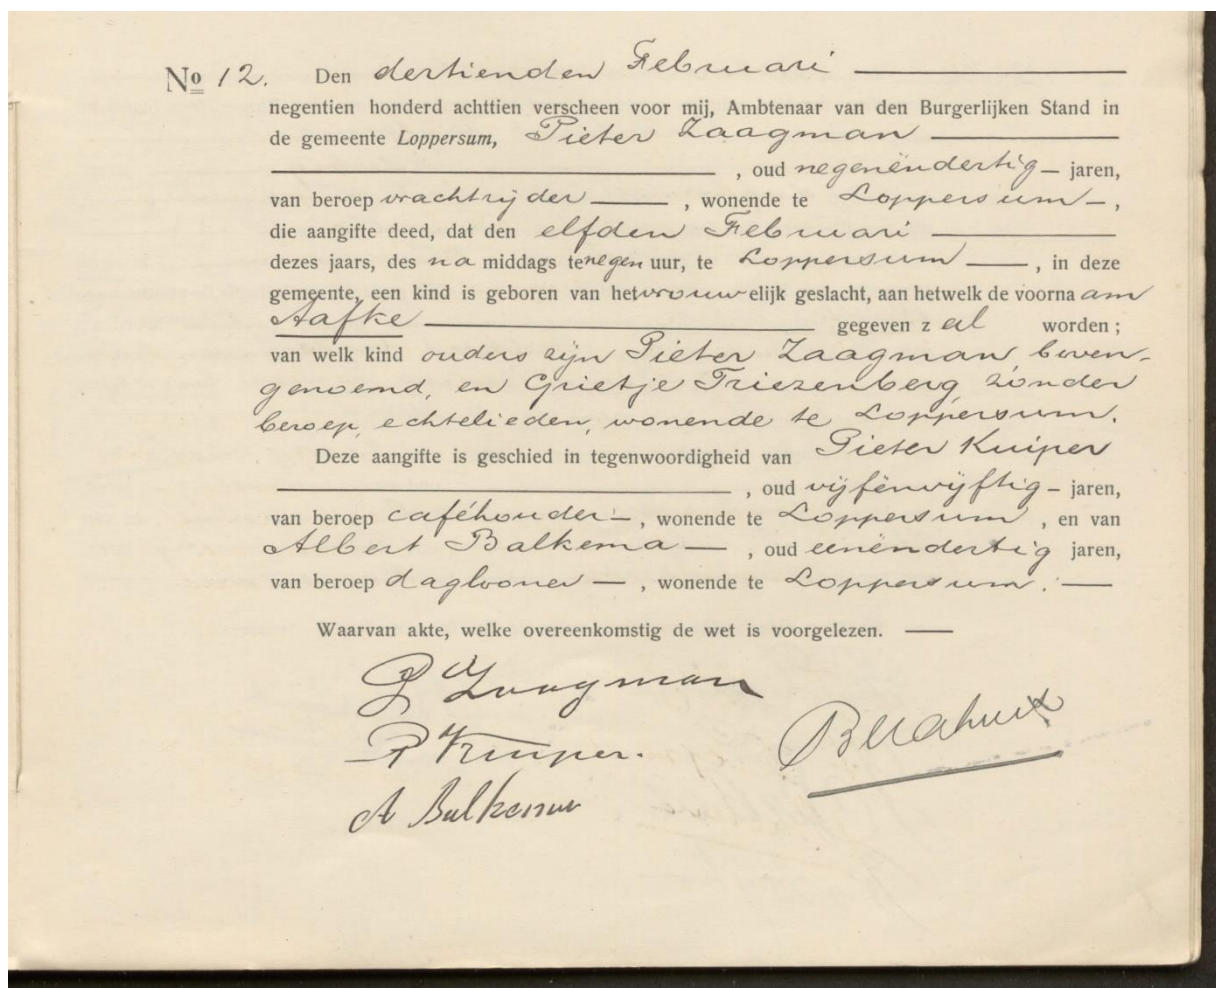 No 12. Den dertienden Februari
negentien honderd achttien verscheen voor mij, Ambtenaar van den Burgerlijken Stand in
de gemeente Loppersum, Pieter Zaagman
, oud negenëndertig jaren,
van beroep vrachtrijder, wonende te Loppersum,
die aangifte deed, dat den elfden Februari
dezes jaars, des na middags te negen uur, te Loppersum, in deze
gemeente, een kind is geboren van het vrouwelijk geslacht, aan hetwelk de voornaam
Aafke gegeven zal worden;
van welk kind ouders zijn Pieter Zaagman boven-
genoemd, en Grietje Triezenberg, zonder
beroep, echtelieden, wonende te Loppersum.
Deze aangifte is geschied in tegenwoordigheid van Pieter Kuiper
, oud vijfënvijftig jaren,
van beroep caféhouder, wonende te Loppersum, en van
Albert Balkema, oud eenëndertig jaren,
van beroep daglooner, wonende te Loppersum.
Waarvan akte, welke overeenkomstig de wet is voorgelezen.
P Zaagman
P Kuiper.
A Balkema